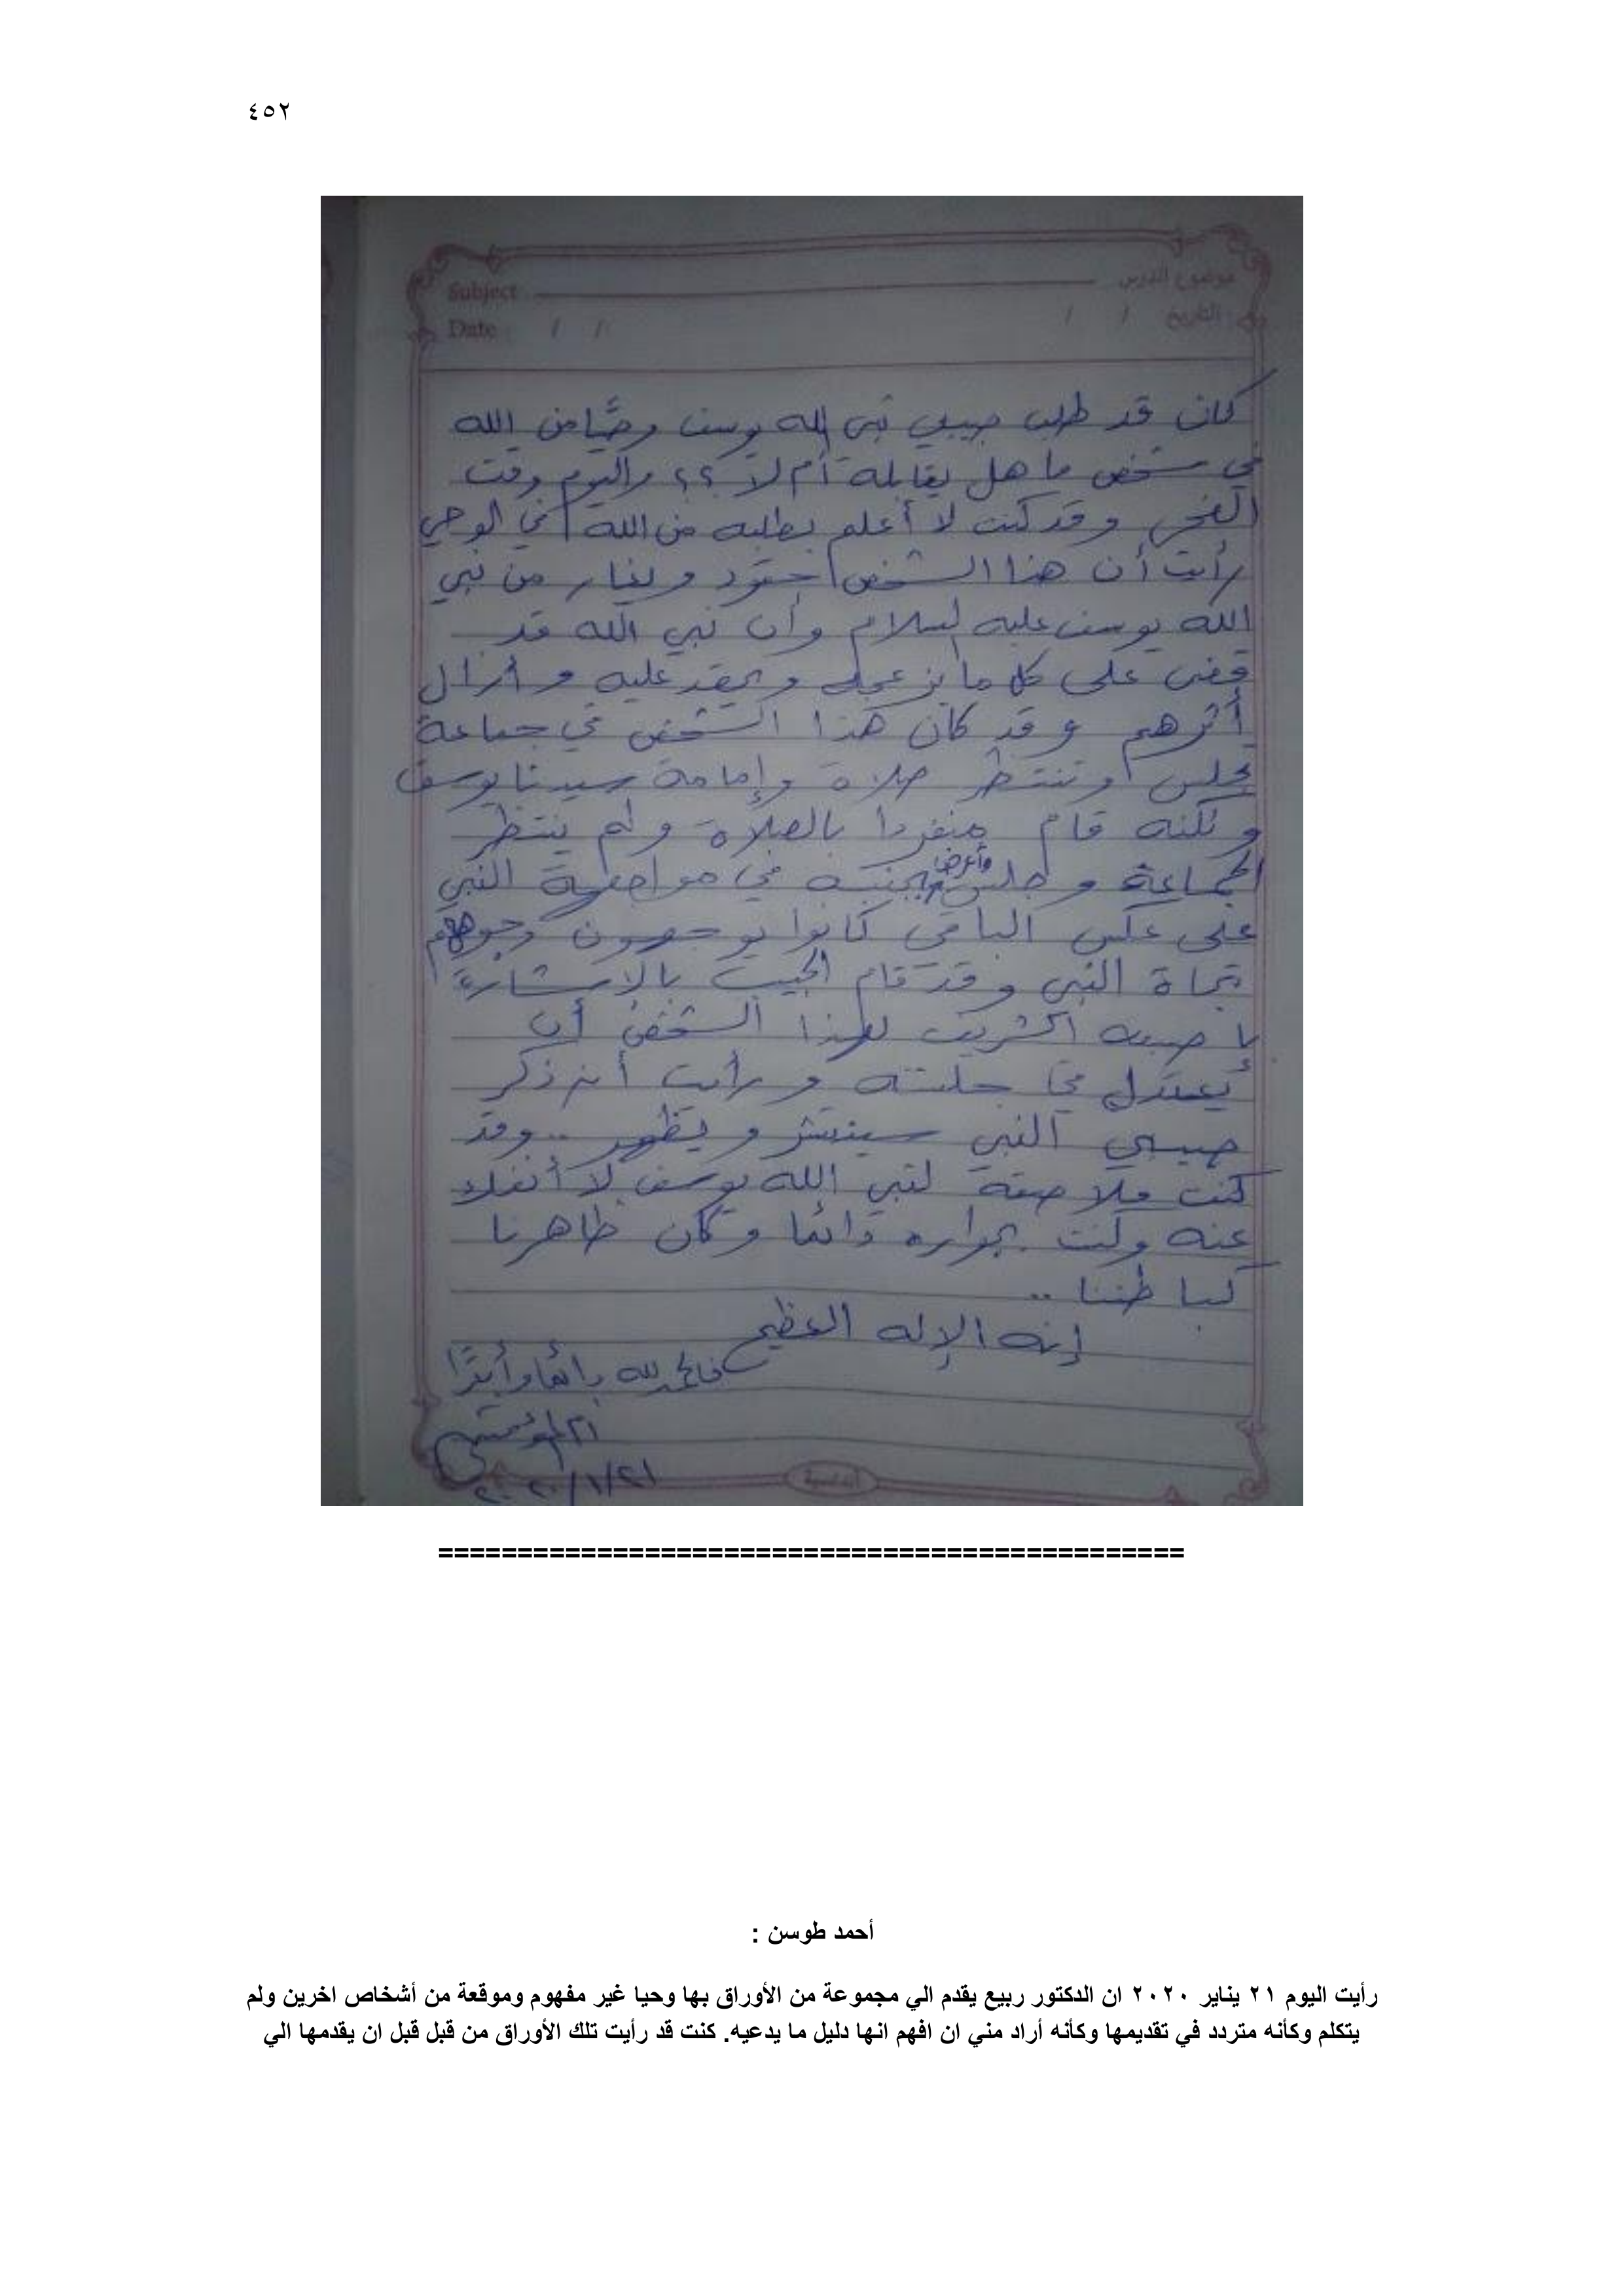 ٤٥٢
Subject
موضوع الدرس
Date / /
التاريخ / /
كان قد طلب حبيبي نبي الله يوسف وحيًا من الله
في شخص ما هل يقابله أم لا ؟؟ واليوم وقت
الفجر وقد كنت لا أعلم بطلبه من الله في الوحي
رأيت أن هذا الشخص حقود ويغار من نبي
الله يوسف عليه السلام وأن نبي الله قد
قضى على كل ما يزعجه ويحقد عليه وأزال
أثرهم وقد كان هذا الشخص في جماعة
تجلس وتنتظر صلاة وإمامة سيدنا يوسف
ولكنه قام منفردا بالصلاة ولم ينتظر
الجماعة وجلس وأعرض بجنبه في مواجهة النبي
على عكس الباقي كانوا يوجهون وجوههم
تجاة النبي وقد قام الحبيب بالإشارة
بإصبعه الشريف لهذا الشخص أن
يعتدل في جلسته ورأيت أن ذكر
حبيبي النبي سينتشر ويظهر .. وقد
كنت ملاصقة لنبي الله يوسف لا أنفك
عنه وكنت بجواره دائما وكان ظاهرنا
كباطننا ..
إنه الإله العظيم
فالحمد لله دائما وأبدًا
٢٠٢٠/١/٢١
===============================================
أحمد طوسن :
رأيت اليوم ٢١ يناير ٢٠٢٠ ان الدكتور ربيع يقدم الي مجموعة من الأوراق بها وحيا غير مفهوم وموقعة من أشخاص اخرين ولم
يتكلم وكأنه متردد في تقديمها وكأنه أراد مني ان افهم انها دليل ما يدعيه. كنت قد رأيت تلك الأوراق من قبل قبل ان يقدمها الي